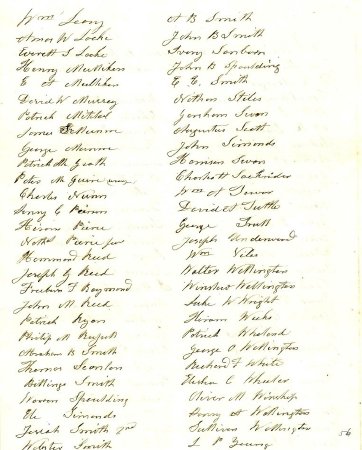 Wm Leary
Amos W Locke
Everett S Locke
Henry Mulliken
E A Mulliken
David W Murray
Patrick Mitchel
James Munroe
George Munroe
Patrick Mc Grath
Peter Mc Guire
Charles Nunn
Henry C Peirce
Hiram Peirce
Nathl Peirce Jun
Hammond Reed
Joseph G Reed
Freeborn F Raymond
John M Reed
Patrick Ryan
Philip M
Abraham B Smith
Thomas Scanlan
Billings Smith
Warren Spaulding
Eli Simonds
Josiah Smith 2nd
Webster Smith
A B Smith
John B Smith
Ivory Sanborn
John B Spaulding
E E Smith
Nathan Stiles
Gorsham Swan
Augustus Scott
John Simonds
Harrison Swan
Charles A
Wm A
David A Tuttle
George
Joseph Underwood
Wm Viles
Walter Wellington
Winslow Wellington
Luke W Wright
Hiram Weeks
Patrick Wheland
George O Wellington
Richard F White
C Wheeler
Oliver M Winship
Henry A Wellington
Sullivan Wellington
L P Young
56